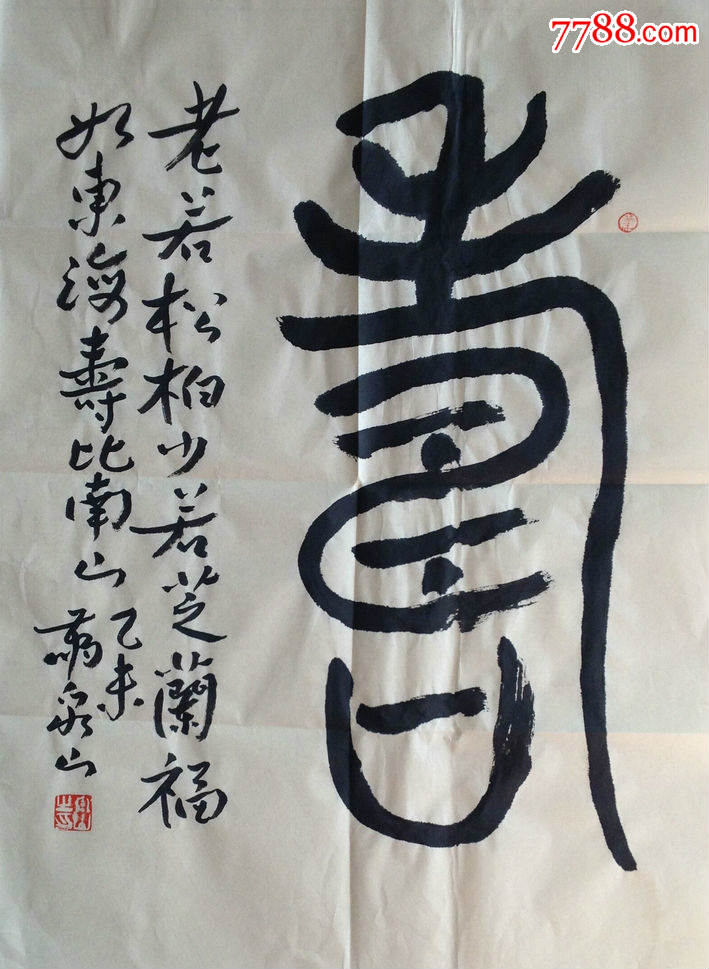 7788.com
壽
老若松柏少若芝蘭福
如東海壽比南山乙未
泉山